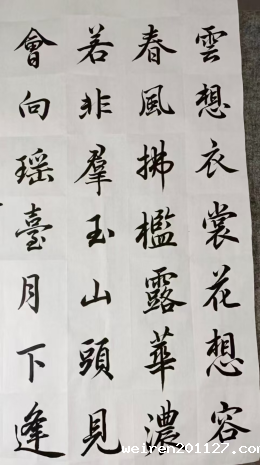 雲想衣裳花想容
春風拂檻露華濃
若非羣玉山頭見
會向瑶臺月下逢
weiren201127.com